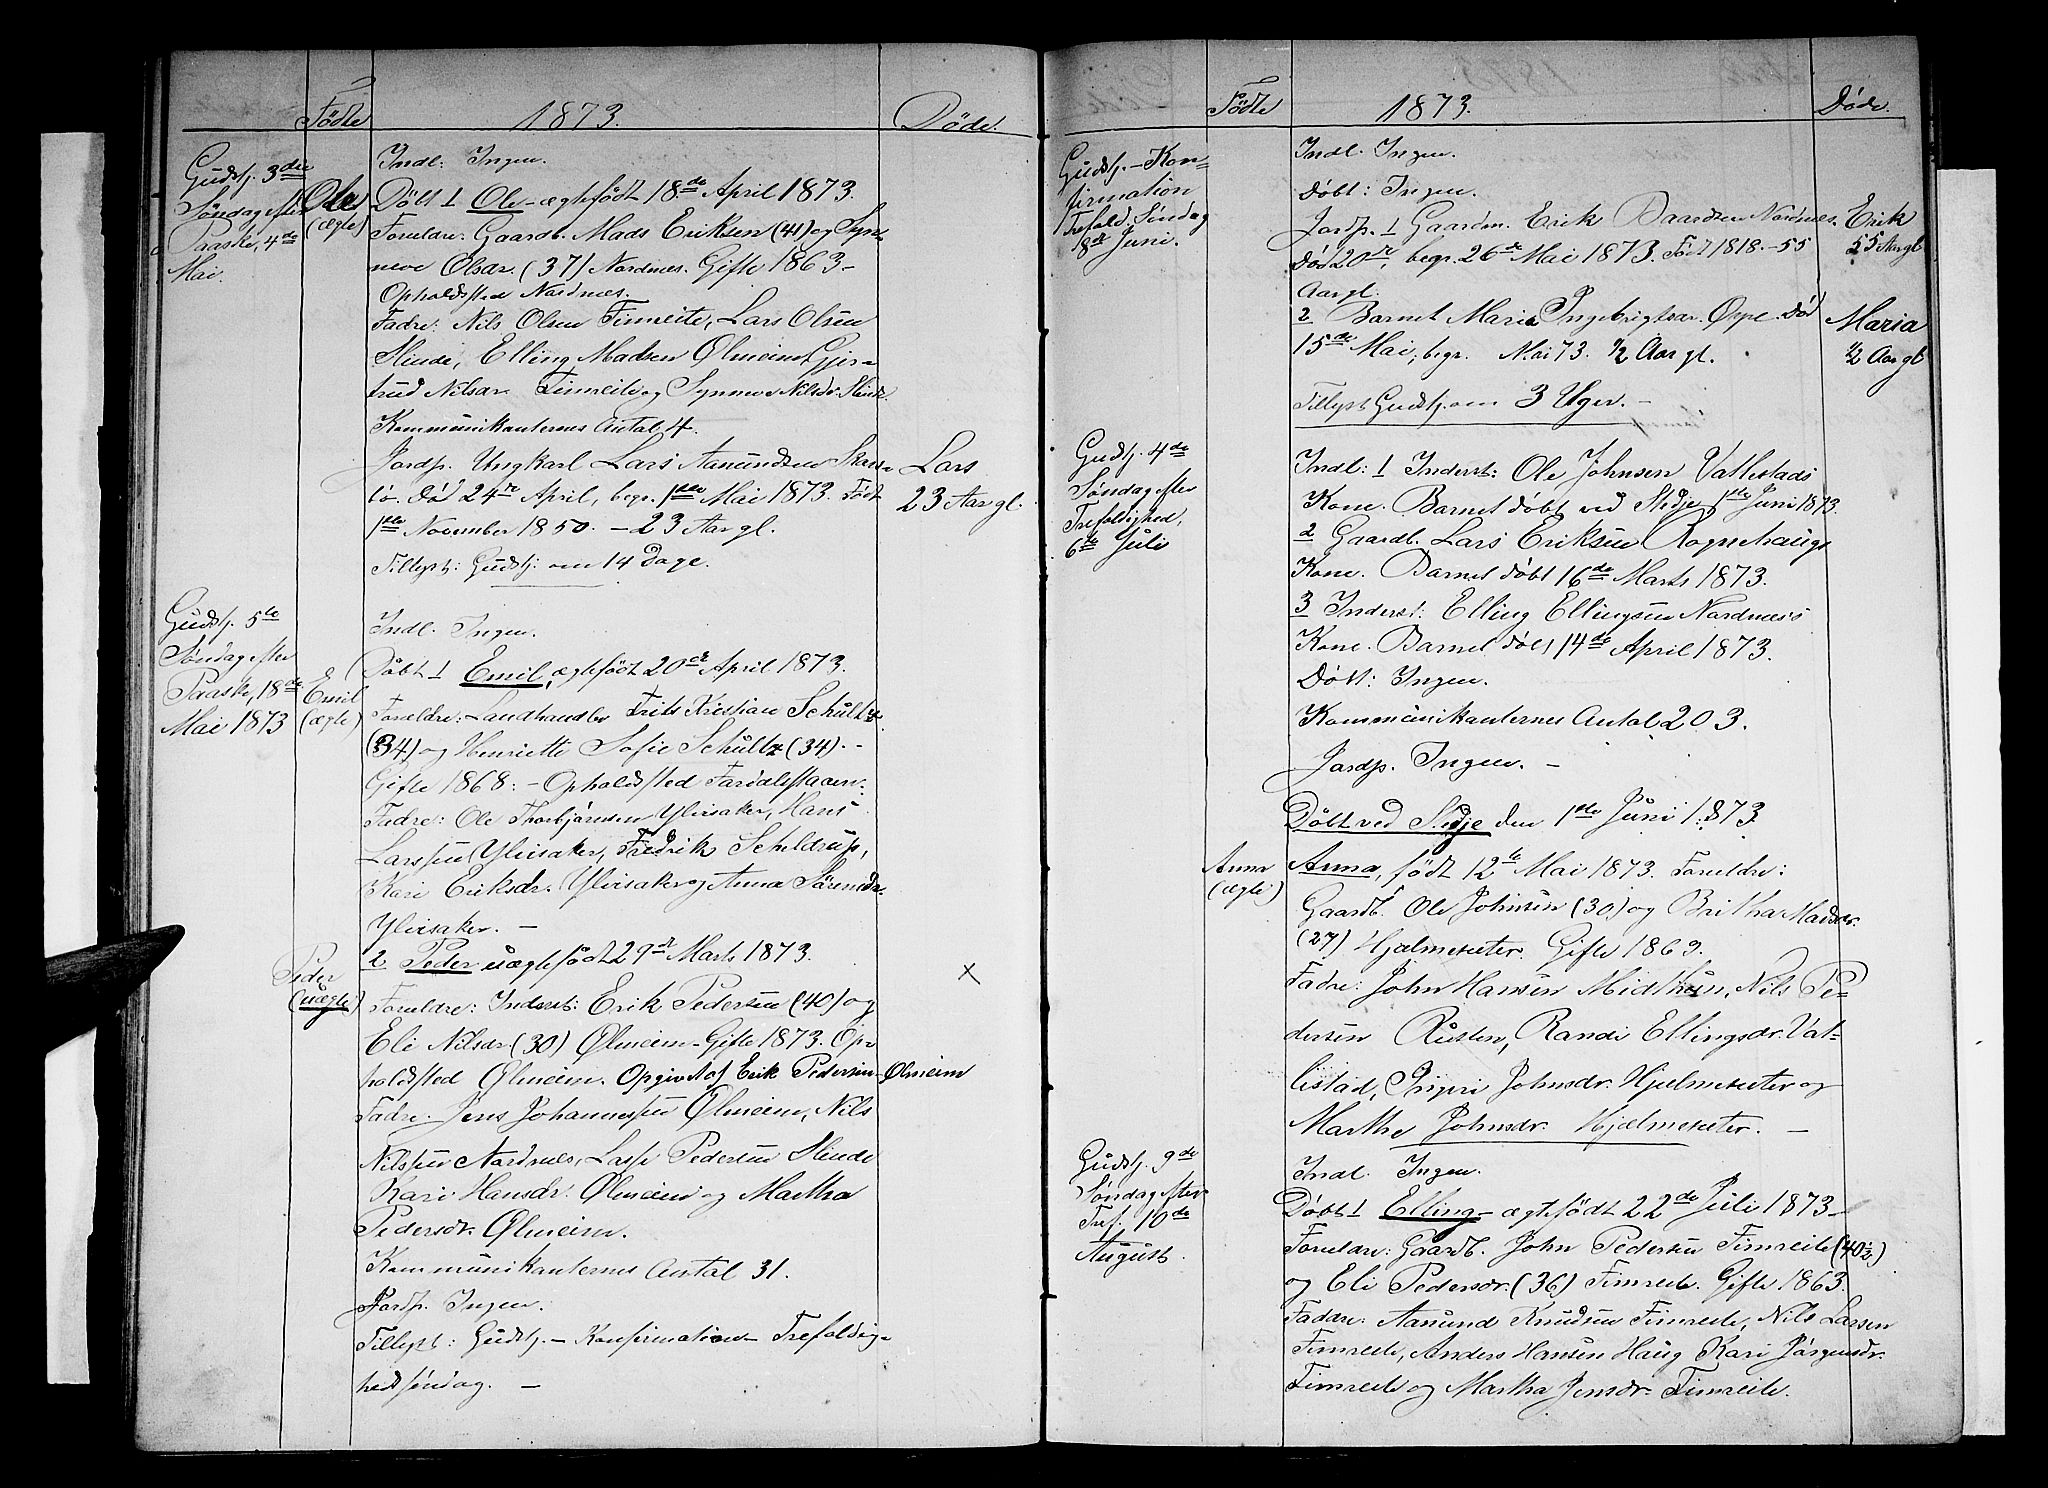 Födte
1873.
Döde.
Gudstj. 3die
Söndag efter
Paaske, 4de
Mai.
Ole
(ægte)
Indl: Ingen.
Döbt 1 Ole - ægtefödt 18de April 1873.
Foreldre: Gaardb. Mads Eriksen (41) og Syn-
neve Olsdr. (37) Nordnes. Gifte 1863 -
Opholdssted Nordnæs.
Fadre: Nils Olsen Fimreite, Lars Olsen
Slinde, Elling Madsen Ølmeim, Gjer-
trud Nilsdr. Fimreite og Synneve Nilsdr. Slinde.
Kommunikanternes Antal 4.
Jordp. Ungkarl Lars Aamundsen Skars-
bö. Död 24de April, begr. 1ste Mai 1873. Födt
1ste November 1850. - 23 Aar gl.
Lars
23 Aar gl.
Tillyst: Gudstj. om 14 Dage.
Gudstj. 5te
Söndag efter
Paaske, 18de
Mai 1873
Emil
(ægte)
Indl. Ingen.
Döbt 1 Emil, ægtefödt 20de April 1873.
Forældre: Landhandler Frits Kristian Schultz
(34) og Henriette Sofie Schultz (34). -
Gifte 1868: - Opholdssted Fardalsstaaen.
Fadre: Ole Thorbjörnsen Ylvisaker, Hans
Larssen Ylvisaker, Fredrik Scheldrup,
Kari Eriksdr. Ylvisaker og Anna Sörensdr.
Ylvisaker. -
Peder
(uægte)
2 Peder uægtefödt 29de Marts 1873.
Foreldre: Inderst: Erik Pedersen (40) og
Eli Nilsdr. (30) Ølmeim - Gifte 1873. Op-
holdssted Ølmeim. Opgivet af Erik Pedersen Ølmeim
Fadre. Jens Johannessen Ølmeim, Nils
Nilssen Nordnæs, Lasse Pedersen Slinde
Kari Hansdr. Ølmeim og Martha
Pedersdr. Ølmeim.
Kommunikanternes Antal 31.
Jordp. Ingen.
Tillyst: Gudstj. - Konfirmation - Trefoldig-
hedssöndag. -
Födte
1873.
Döde.
Gudstj. - Kon-
firmation
Trefold. Söndag
8de Juni.
Indl. Ingen.
Döbt: Ingen.
Jordp. 1 Gaardm. Erik Baardsen Nordnes.
Död 20de, begr. 26de Mai 1873. Födt 1818. - 55
Aar gl.
Erik
55 Aar gl
2 Barnet Maria Ingebrigtsdr. Øppe. Död
15de Mai, begr. Mai 73. 1/2 Aar gl.
Maria
1/2 Aar gl
Tillyst Gudstj. om 3 Uger. -
Gudstj. 4de
Söndag efter
Trefoldighed,
6te Juli
Indl: 1 Inderst: Ole Johnsen Vallestads
Kone. Barnet döbt ved Stedje 1ste Juni 1873.
2 Gaardb. Lars Eriksen Rognehaugs
Kone. Barnet döbt 16de Marts 1873.
3 Inderst: Elling Ellingsen Nordnæs's
Kone. Barnet döbt 14de April 1873.
Döbt: Ingen.
Kommunikanternes Antal 203.
Jordp. Ingen. -
Döbt ved Stedje den 1ste Juni 1873.
Anna
(ægte)
Anna, födt 12te Mai 1873. Foreldre:
Gaardb. Ole Johnsen (30) og Britha Madsdr.
(27) Hjelmeseter. Gifte 1869.
Fadre: John Hansen Midthun, Nils Pe-
dersen Rusten, Randi Ellingsdr. Val-
lestad, Sigri Johnsdr. Hjelmeseter og
Marthe Johnsdr. Hjelmeseter. -
Gudstj. 9de
Söndag efter
Tref. 10de
August.
Indl. Ingen.
Döbt 1 Elling - ægtefödt 22de Juli 1873 -
Foreldre: Gaardb. John Pedersen Fimreite (40 1/2)
og Eli Pedersdr. (36) Fimreite. Gifte 1863.
Faddre: Aamund Knudsen Fimreite, Nils Larsen
Fimreite, Anders Hansen Haug Kari Jörgensdr.
Fimreite og Martha Jensdr. Fimreite.